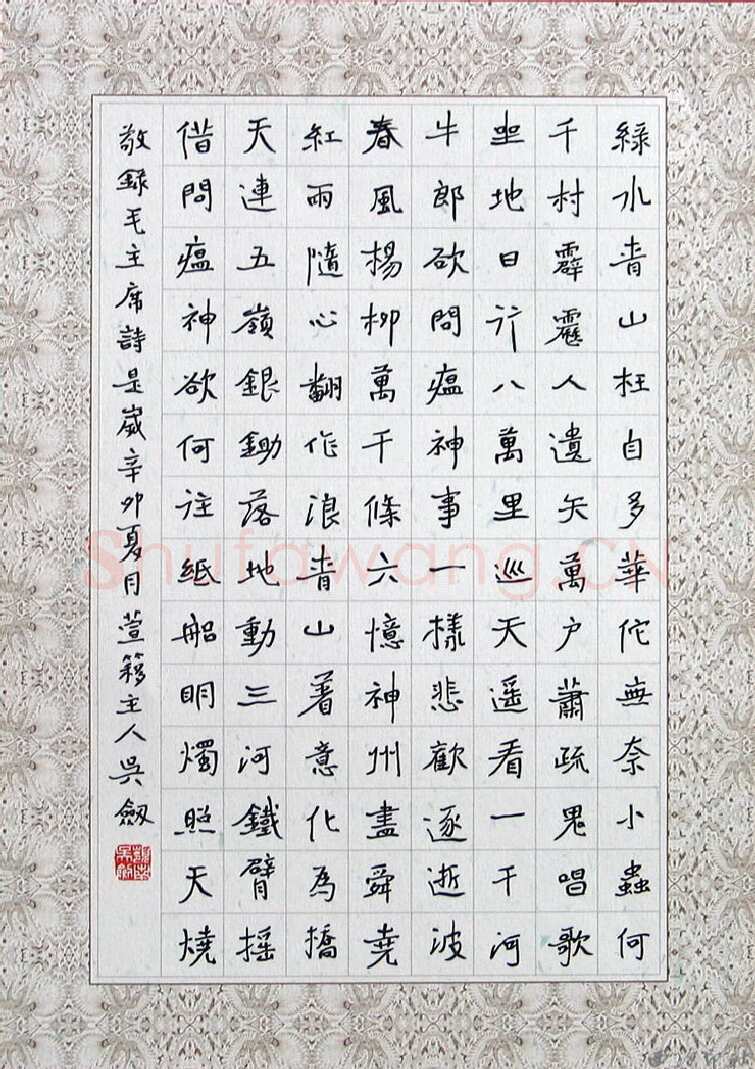 綠水青山枉自多華佗無奈小蟲何
千村霹靂人遺矢萬户蕭疏鬼唱歌
坐地日行八萬里巡天遥看一千河
牛郎欲問瘟神事一樣悲歡逐逝波
春風楊柳萬千條六憶神州盡舜堯
紅雨隨心翻作浪青山着意化為橋
天連五嶺銀鋤落地動三河鐵臂摇
借問瘟神欲何往紙船明燭照天燒
敬錄毛主席詩是歲辛卯夏月萱簃主人吳劍
Shufawang.CN